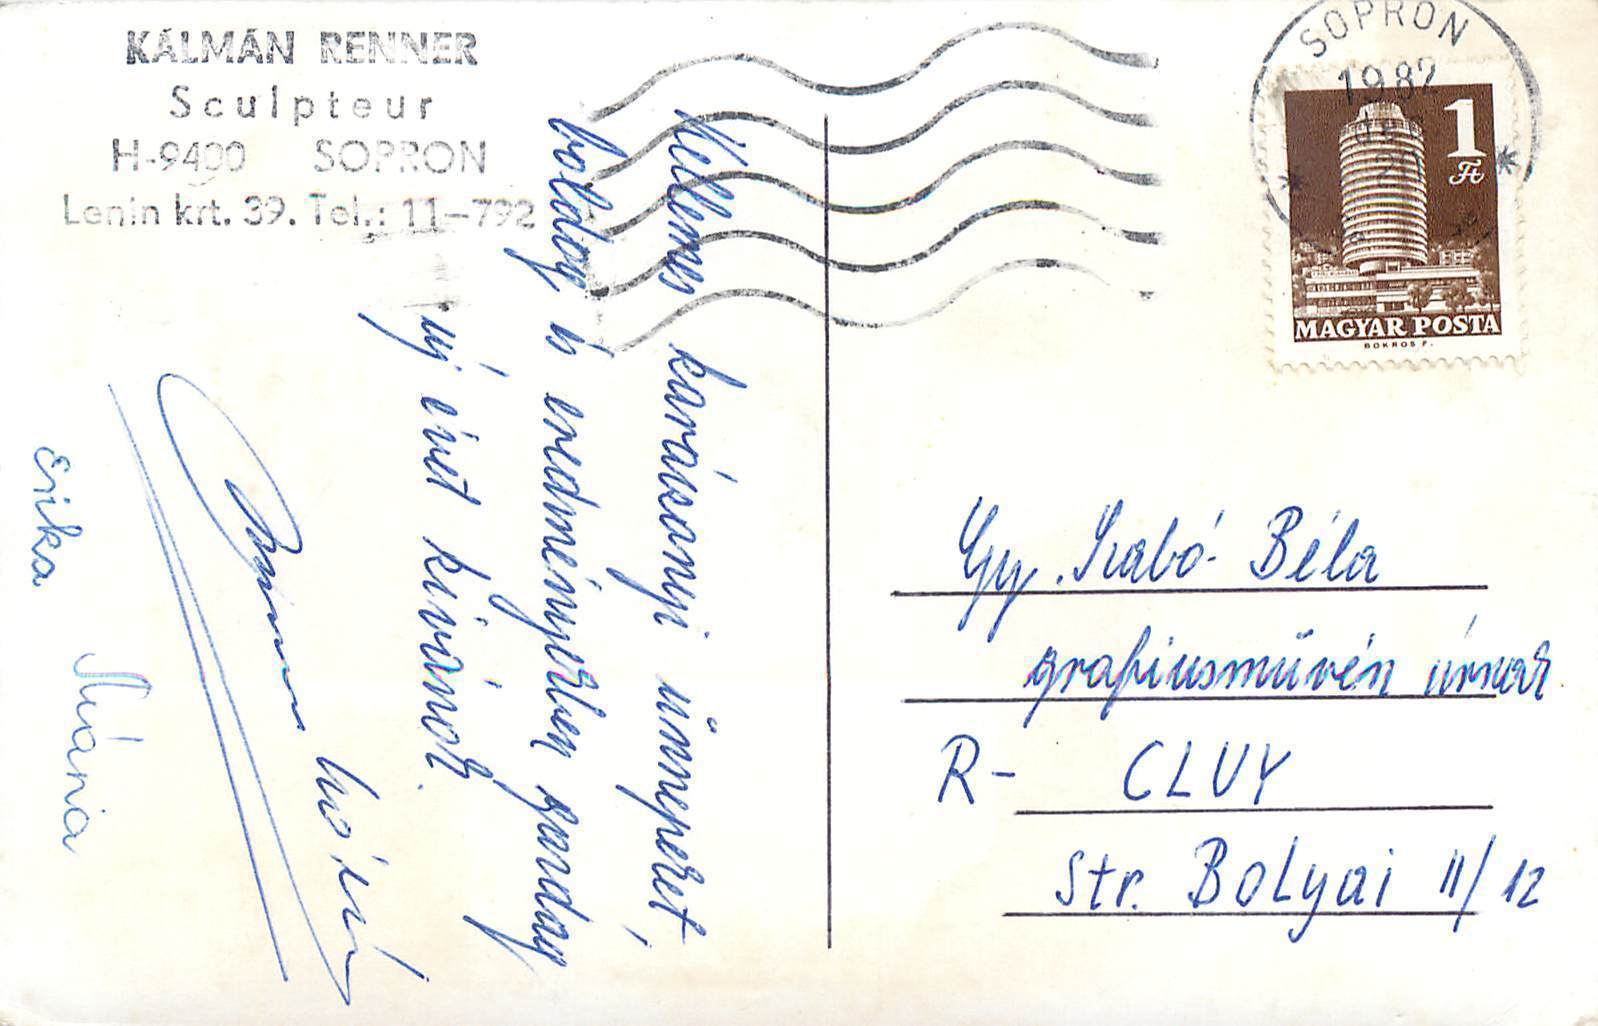 KÁLMÁN RENNER
Sculpteur
H-9400 SOPRON
Lenin krt. 39. Tel.: 11-792
Kellemes karácsonyi ünnepeket,
boldog is eredményekben gazdag
új évet kívánok.
Erika
Mária
SOPRON
1982
1
Ft
MAGYAR POSTA
BOKROS F.
Gy. Szabó Béla
grafikusművész úrnak
R- CLUY
Str. BOLyai 11/12